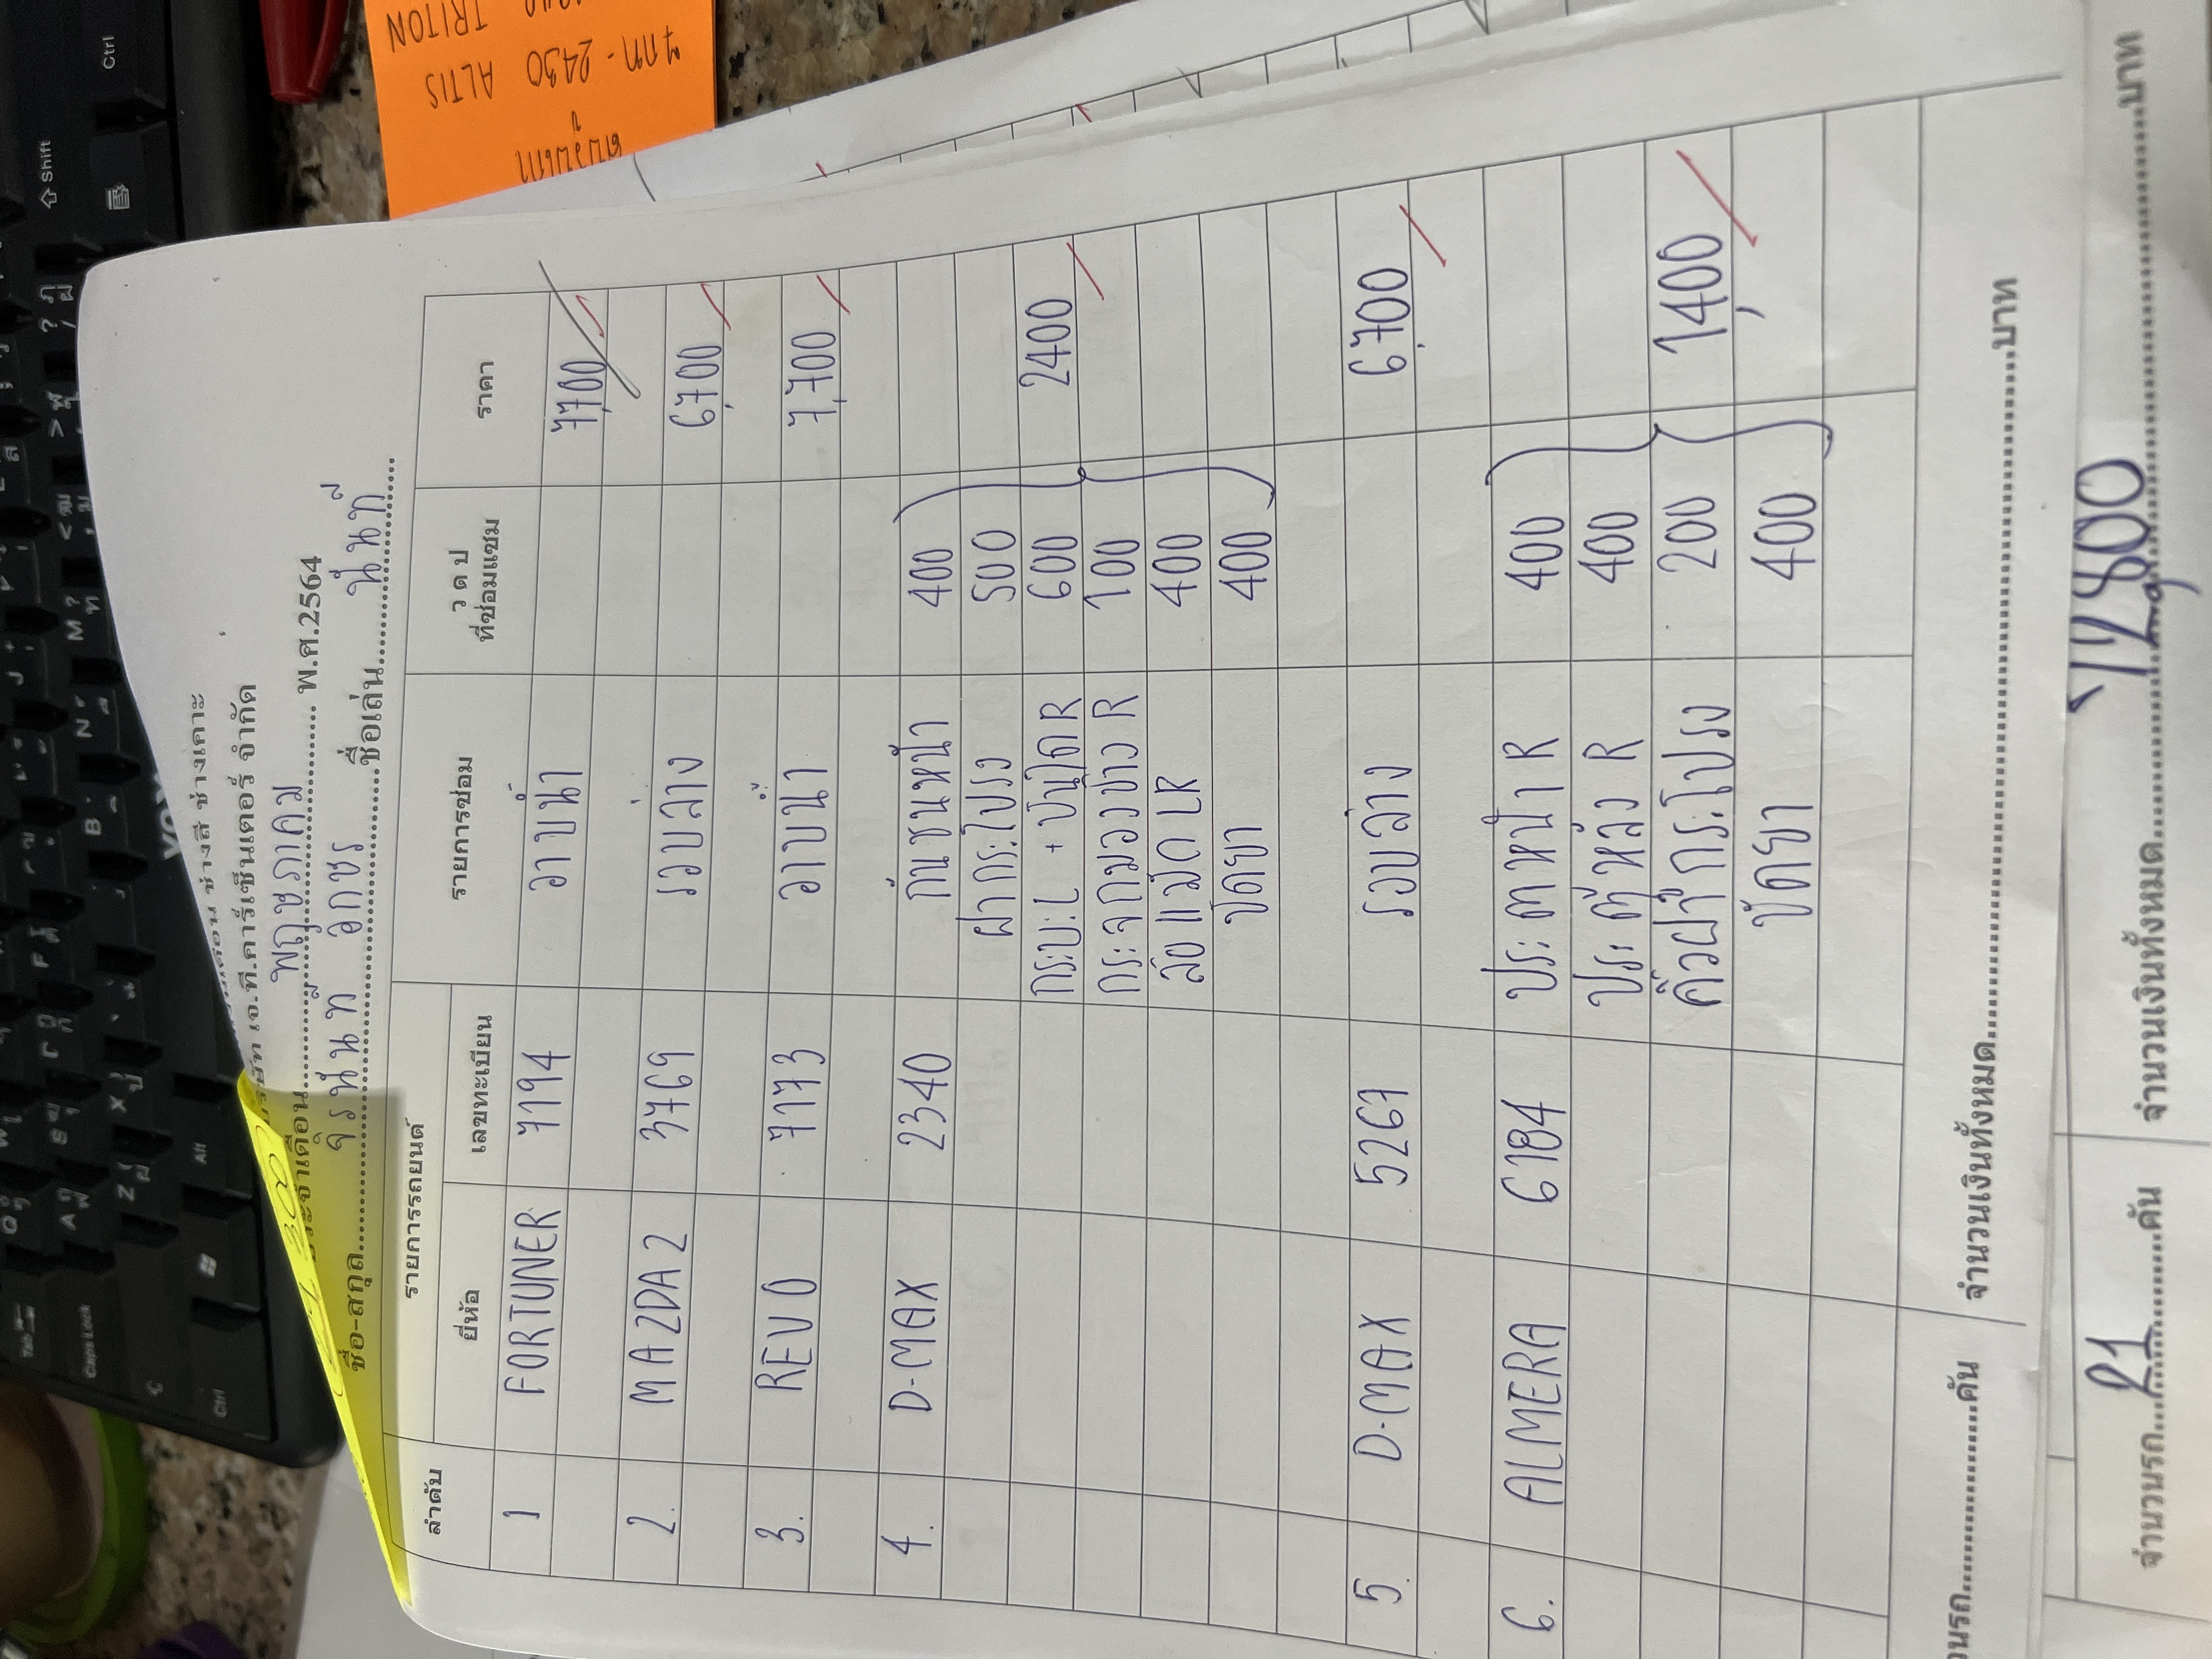 ช่างสี ช่างเคาะ
เจ.ที.คาร์เซ็นเตอร์ จำกัด
ประจำเดือน พฤษภาคม พ.ศ.2564
ชื่อ-สกุล จิรนันท อกชร ชื่อเล่น นันท์
ลำดับ รายการรถยนต์ รายการซ่อม ว ด ป ที่ซ่อมแซม ราคา
ยี่ห้อ เลขทะเบียน
1 FORTUNER 7194 อาบน้ำ 7,700
2. MAZDA 2 3769 รอบล่าง 6,700
3. REVO 7173 อาบน้ำ 7,700
4. D-MAX 2340 กันชนหน้า 400
ฝากระโปรง 500
กระบะL + บันได R 600 2400
กระจกมองข้าง R 100
ลบแม็ค LR 400
ขัดยา 400
5. D-MAX 5267 รอบล่าง 6,700
6. ALMERA 6184 ประตูหน้า R 400
ประตูหลัง R 400
คิ้วฝากระโปรง 200 1,400
ขัดยา 400
จำนวนรถ คัน จำนวนเงินทั้งหมด บาท
จำนวนรถ 21 คัน จำนวนเงินทั้งหมด 12,800 บาท
2430 ALTIS
TRITON
Ctrl
Shift
Tab
Caps Lock
Alt
Ctrl